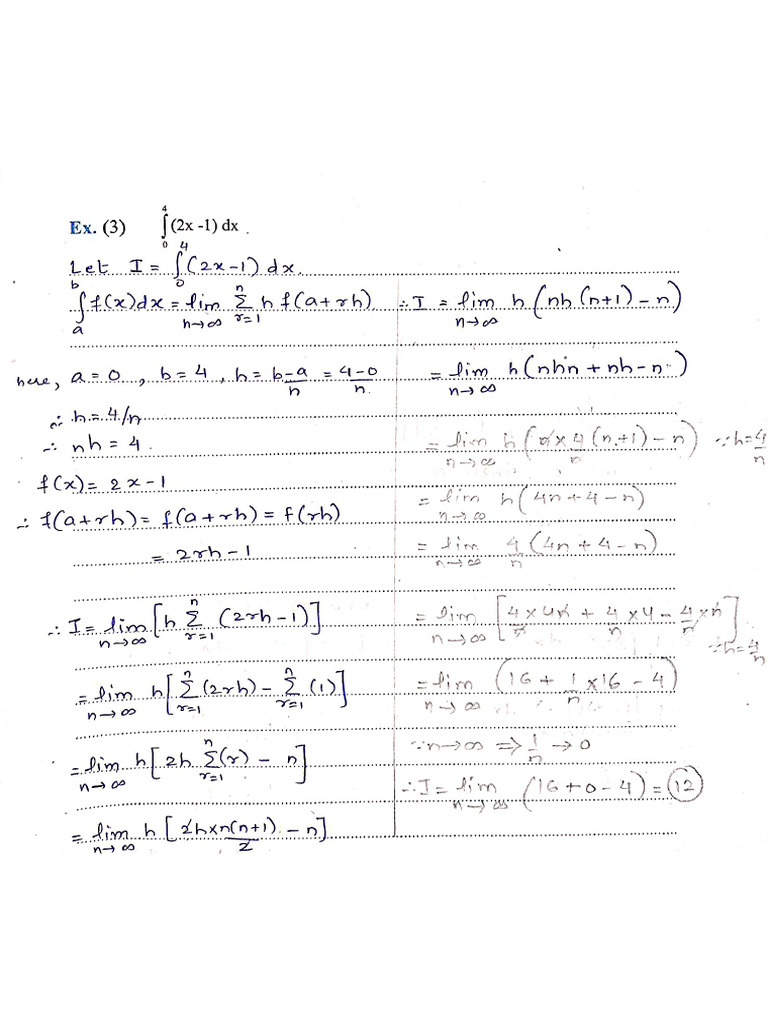 Ex. (3) ∫₀⁴ (2x -1) dx .
Let I = ∫₀⁴ (2x-1) dx.
∫ₐᵇ f(x)dx = lim_{n→∞} Σ_{r=1}^{n} h f(a+rh)
here, a = 0 , b = 4 , h = (b-a)/n = (4-0)/n.
∴ h = 4/n
∴ nh = 4.
f(x) = 2x-1
∴ f(a+rh) = f(a+rh) = f(rh)
= 2rh-1
∴ I = lim_{n→∞} [h Σ_{r=1}^{n} (2rh-1)]
= lim_{n→∞} h[Σ_{r=1}^{n} (2rh) - Σ_{r=1}^{n} (1)]
= lim_{n→∞} h[2h Σ_{r=1}^{n} (r) - n]
= lim_{n→∞} h [2h×n(n+1)/2 - n]
∴ I = lim_{n→∞} h (nh (n+1) - n)
= lim_{n→∞} h(nhn + nh - n)
= lim_{n→∞} h (n × 4/n (n+1) - n) ∵ h = 4/n
= lim_{n→∞} h(4n+4-n)
= lim_{n→∞} 4/n (4n+4-n)
= lim_{n→∞} [4/n × 4n + 4/n × 4 - 4/n × n]
∵ h = 4/n
= lim_{n→∞} (16 + 1/n × 16 - 4)
∵ n→∞ ⇒ 1/n → 0
∴ I = lim_{n→∞} (16+0-4) = 12